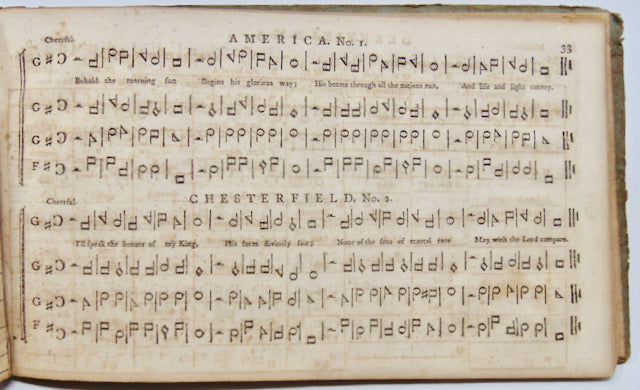 AMERICA. No. 1.
Cheerful.
33
G
Behold the morning sun Begins his glorious way; His beams through all the nations run, And life and light convey.
G
G
F
CHESTERFIELD. No. 2.
Cheerful.
G
I'll speak the honors of my King, His form divinely fair; None of the sons of mortal race May with the Lord compare.
G
G
F